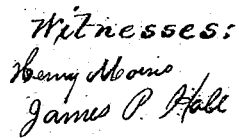 Witnesses:
Henry
James P. Hall